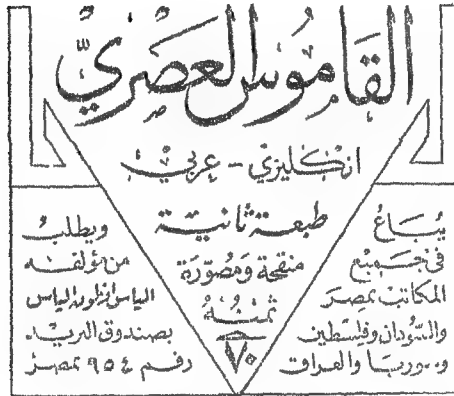 القاموس العصريّ
انكليزي - عربي
طبعة ثانية
منقحة ومصوّرة
ثمنهُ
٧٠
يُباعُ
في جميع
المكاتب بمصر
والسودان وفلسطين
وسوريا والعراق
ويطلب
من مؤلفه
الياس انطون الياس
بصندوق البريد
رقم ٩٥٤ بمصر